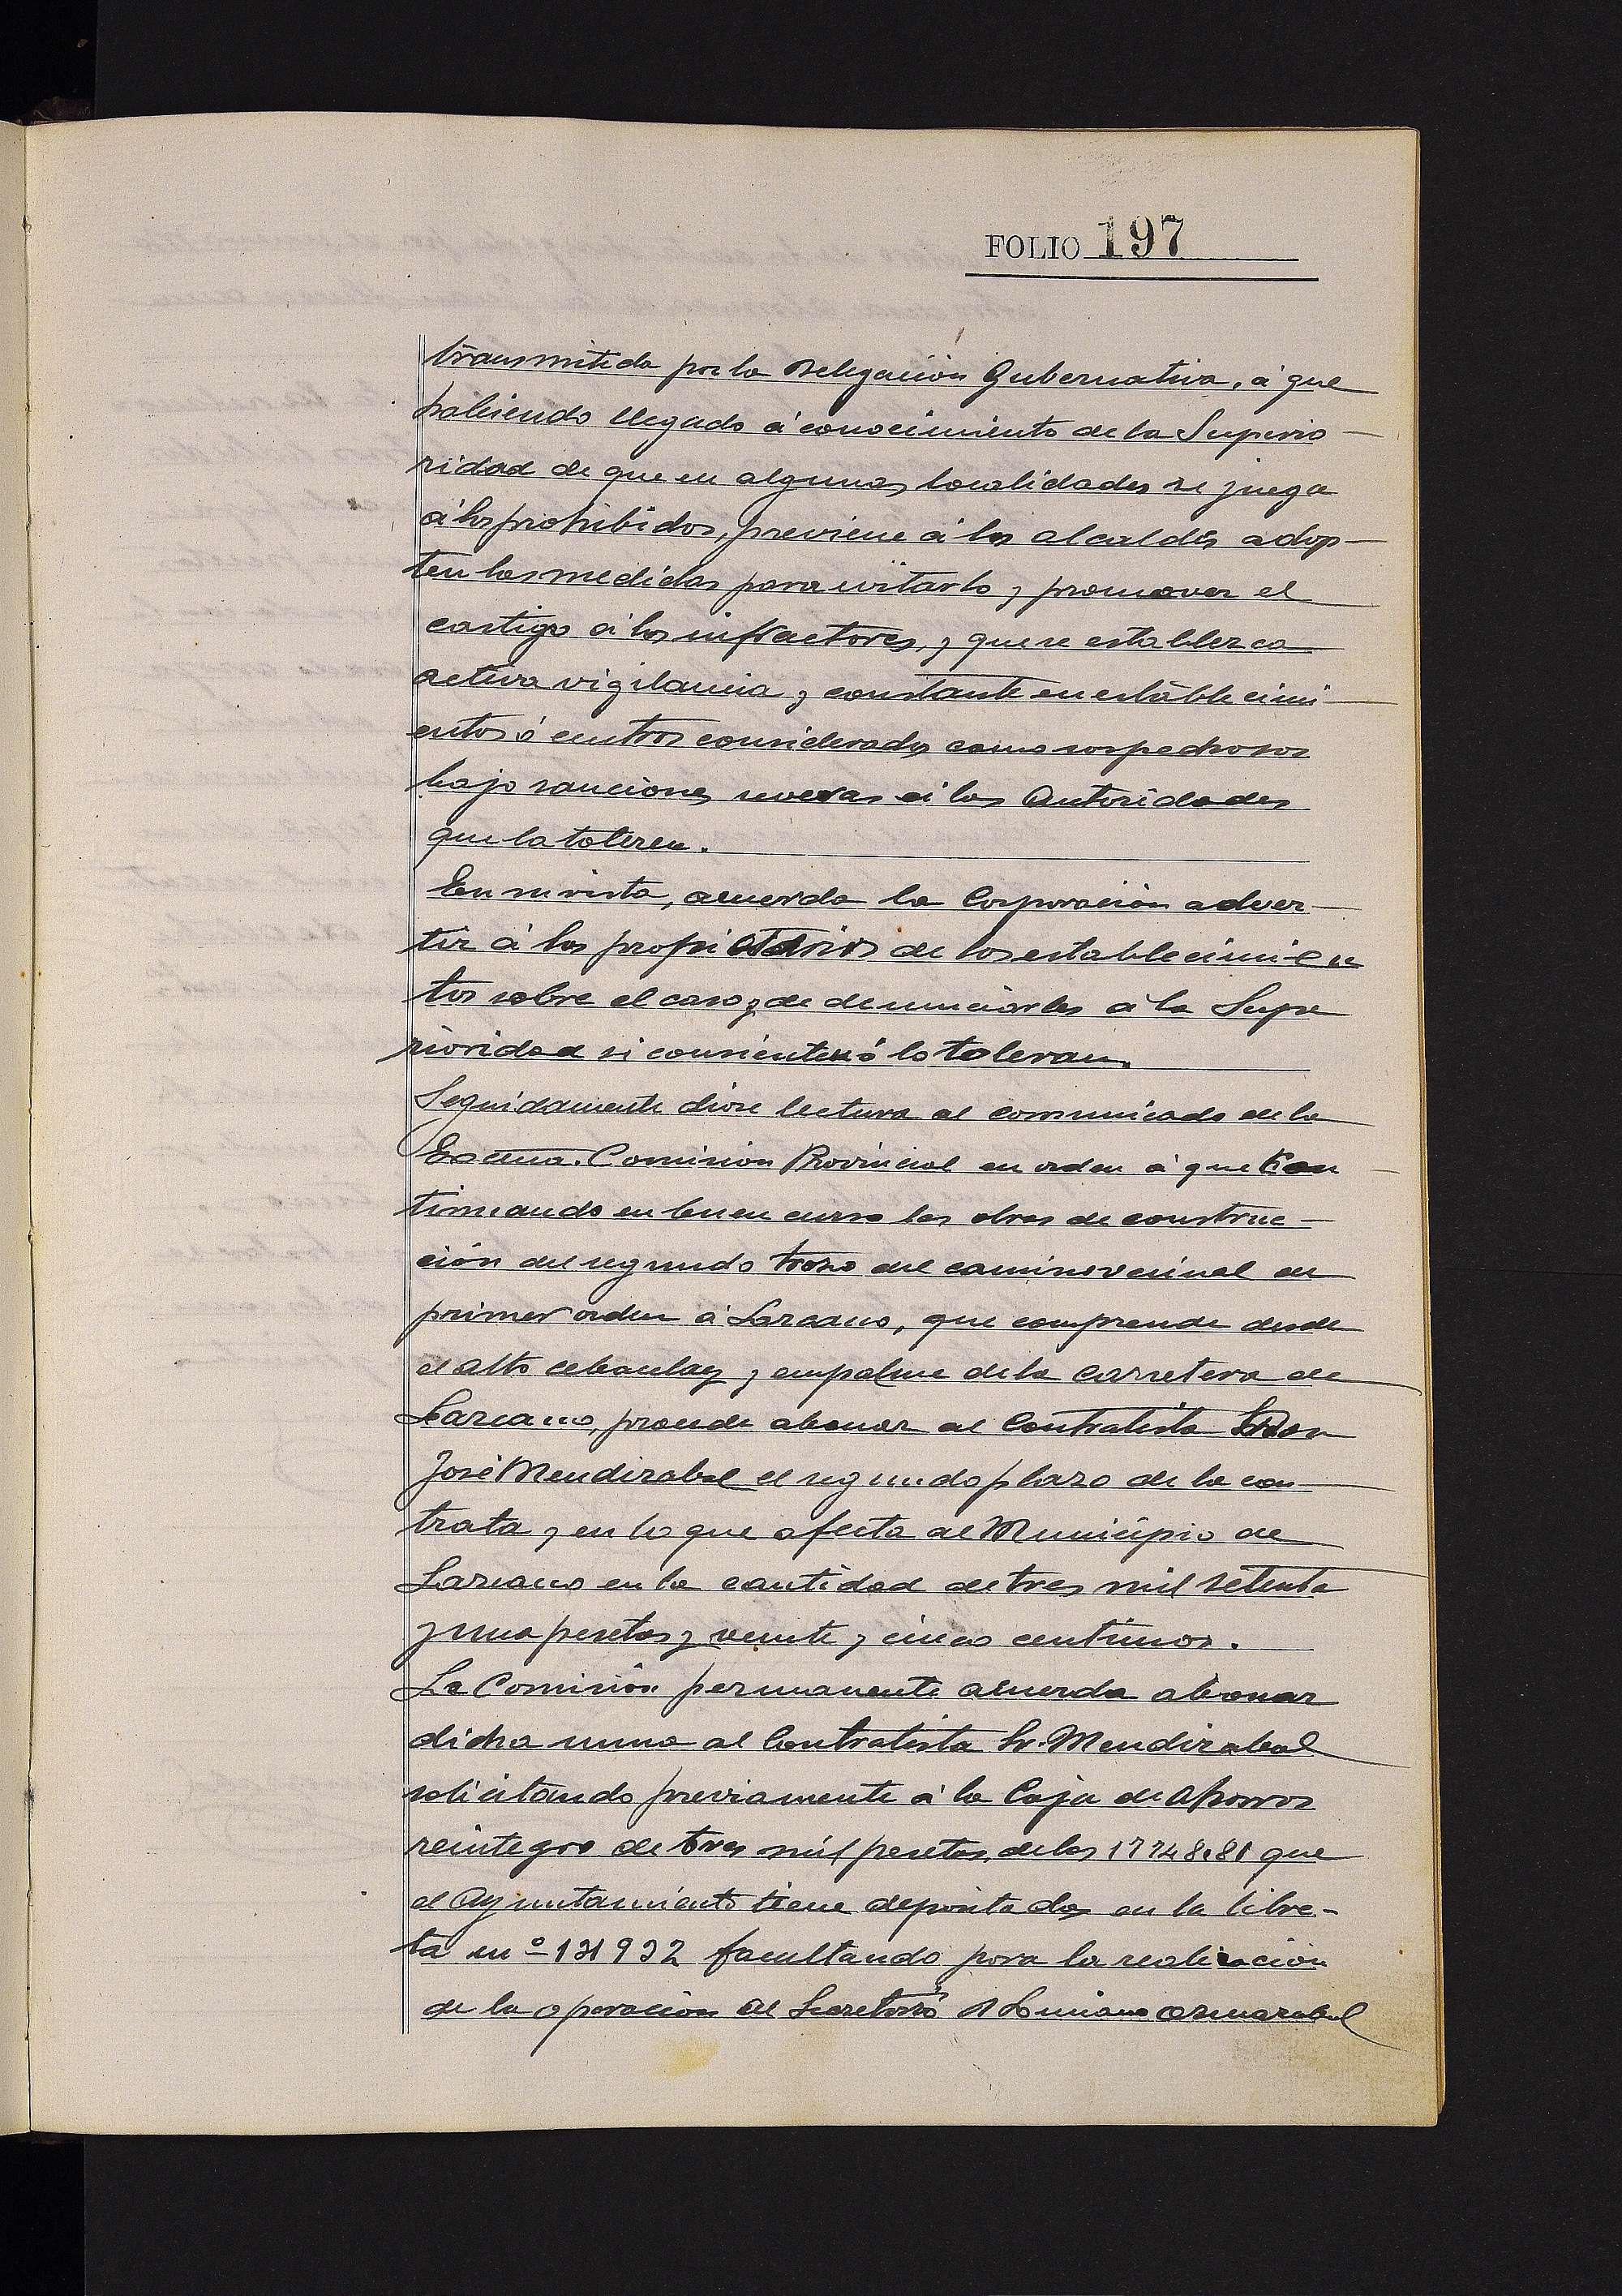 FOLIO 197
transmitida por la Delegación Gubernativa, á que
habiendo llegado á conocimiento de la Superio-
ridad de que en algunas localidades se juega
á los prohibidos, previene á los alcaldes adop-
ten las medidas para evitarlo y promover el
castigo á los infractores, y que se establezca
activa vigilancia y constante en establecimi-
entos ó centros considerados como sospechosos
bajo sanciones severas á las Autoridades
que la toleren.
En su vista, acuerda la Corporación adver-
tir á los propietarios de los establecimien
tos sobre el caso y de denunciarles á la Supe
rioridad si consienten ó lo toleran.
Seguidamente dióse lectura al comunicado de la
Excma. Comisión Provincial en orden á que Con
tinuando en buen curso las obras de construc-
ción del segundo trozo del camino vecinal de
primer orden á Lazcano, que comprende desde
el alto de y empalme de la carretera de
Lazcano, procede abonar al Contratista Don
José Mendizabal el segundo plazo de la con-
trata y en lo que afecta al Municipio de
Lazcano en la cantidad de tres mil setenta
y una pesetas y veinte y cinco centimos.
La Comisión permanente acuerda abonar
dicha suma al Contratista Sr. Mendizabal
solicitando previamente á la Caja de Ahorros
reintegro de tres mil pesetas de las 17748,81 que
el Ayuntamiento tiene depositadas en la libre-
ta nº 131932 facultando para la realización
de la operación al Secretario D Luciano